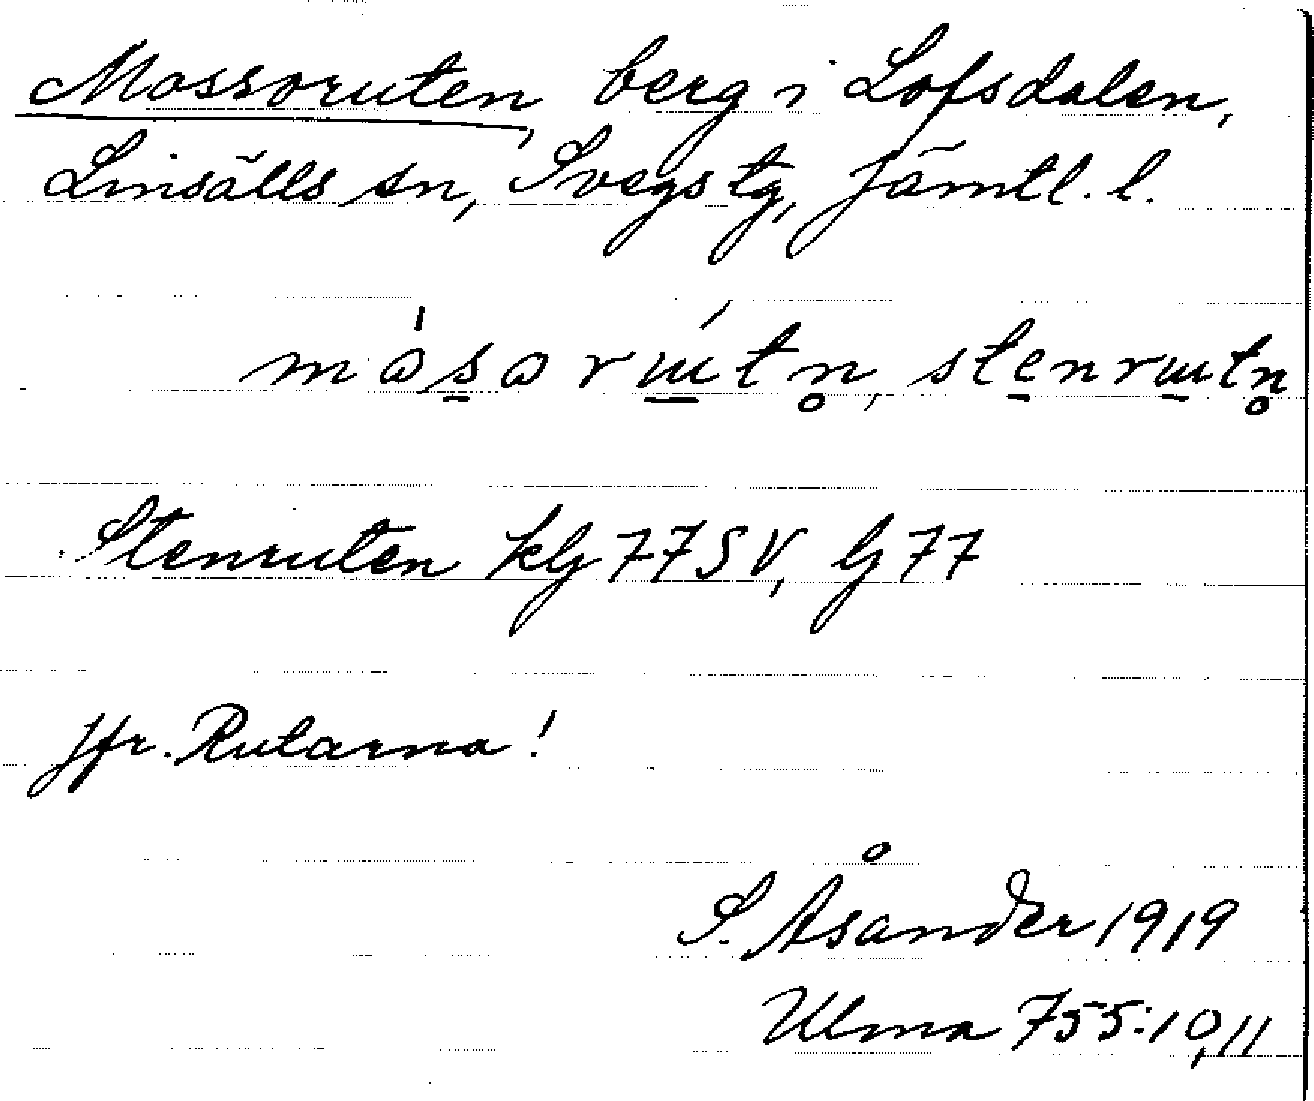 Mossoruten, berg i Lofsdalen,
Linsälls sn, Svegs tg, Jämtl. l.
måsarɯ́tn̥, stenrɯtn̥
Stenruten kbl 77SV, bl 77
Jfr. Rutarna!
S. Åsander 1919
Ulma 755:10,11